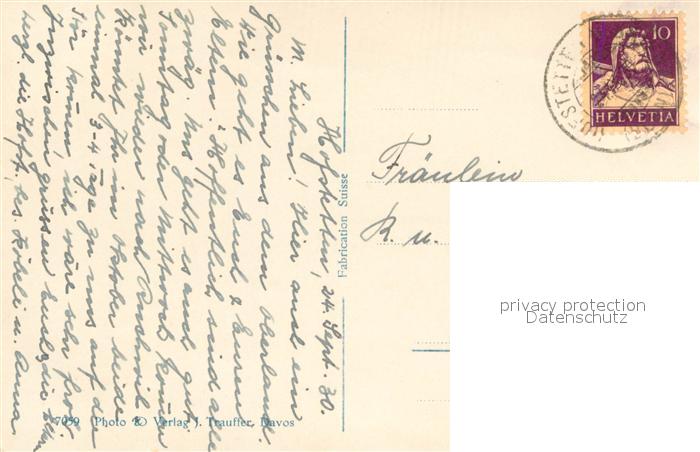 Hofstetten, 24. Sept. 30.
M. Lieben! Hier auch ein
Grüsschen aus dem Oberland.
Wie geht es Euch & Euren
Eltern. Hoffentlich sind alle
zwäg. Uns geht es auch gut.
Sonntag oder Mittwoch kommen
wir wieder nach
Könntet Ihr im Oktober beide
einmal 3-4 Tage zu uns auf die
kommen, ich wäre sehr froh.
Inzwischen grüssen Euch, die Eltern
herzl. die u. Anna
7059 Photo & Verlag J. Trauffer, Davos
Fabrication Suisse
Fräulein
R. u.
10
HELVETIA
privacy protection
Datenschutz